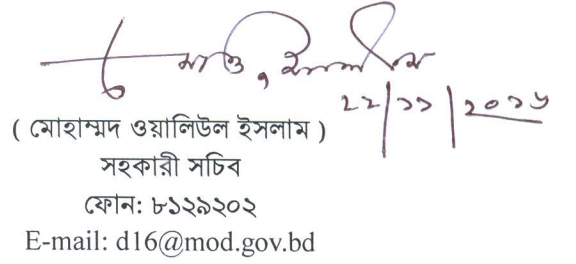 ২২/১১/২০১৬
( মোহাম্মদ ওয়ালিউল ইসলাম )
সহকারী সচিব
ফোন: ৮১২৯২০২
E-mail: d16@mod.gov.bd